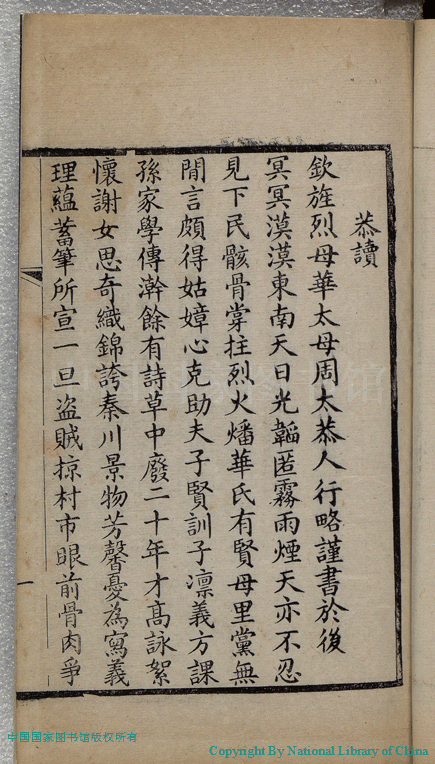 恭讀
欽旌烈母華太母周太恭人行略謹書於後
冥冥漠漠東南天日光韜匿霧雨煙天亦不忍
見下民骸骨撐拄烈火燔華氏有賢母里黨無
閒言頗得姑嫜心克助夫子賢訓子凛義方課
孫家學傳澣餘有詩草中廢二十年才高詠絮
懷謝女思奇織錦誇秦川景物芳馨憂為寫義
理蘊蓄筆所宣一旦盜賊掠村市眼前骨肉爭
一
中国国家图书馆版权所有
Copyright By National Library of China